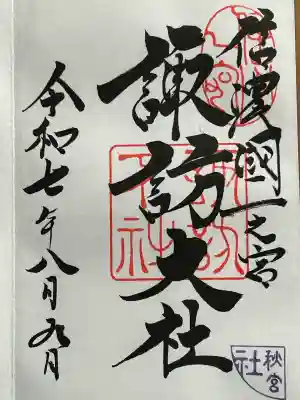 信濃國一之宮
諏訪大社
諏訪
下社
令和七年八月九日
秋宮
社